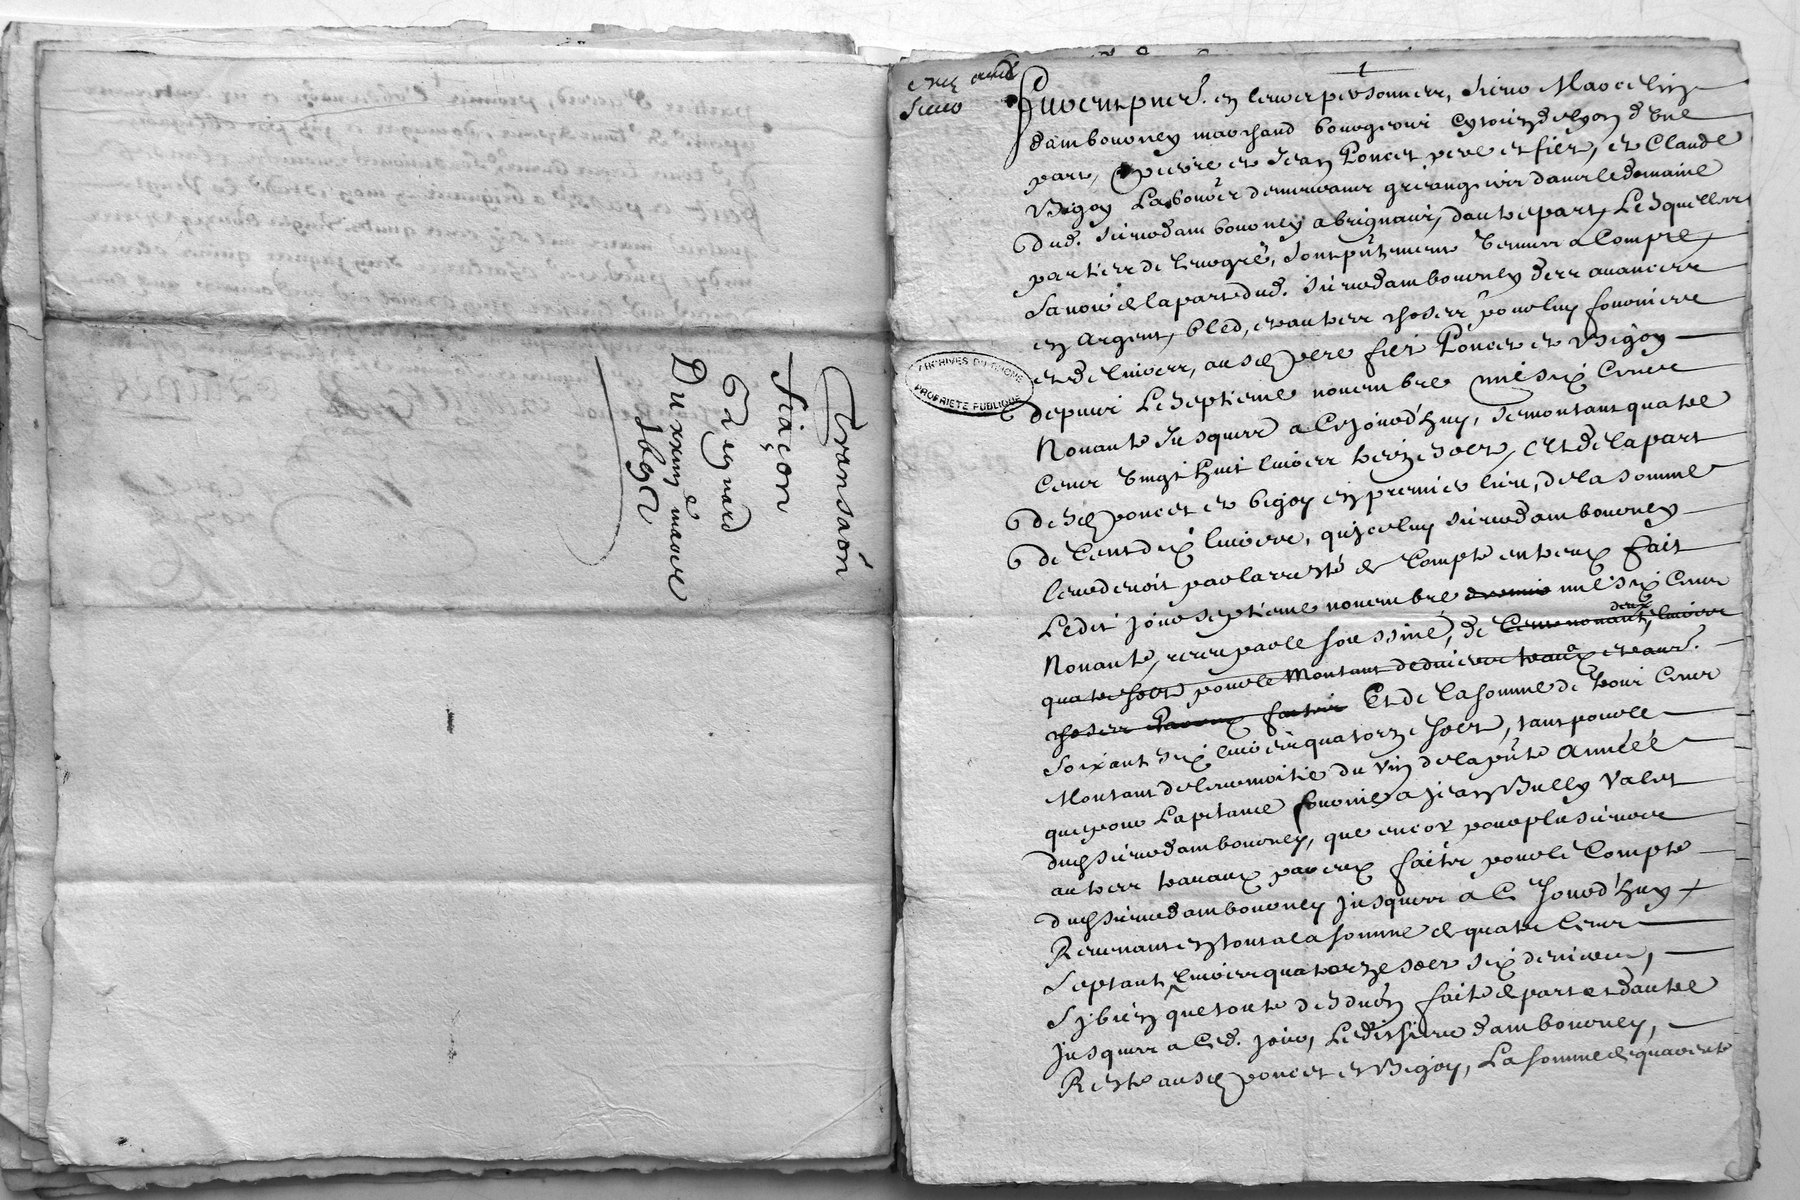 Transaõn
fiaçon
Grignard
Du xxiiij e mars
1692
ARCHIVES DU RHONE
PROPRIETE PUBLIQUE
1
Furent pnts. en leurs personnes, Sieur Marcelin
dambourney marchand bourgeois cytoien de lyon d'une
part, pierre et Jean Poncet pere et filz, et Claude
Bigoy Laboureurs demeurants grangiers dans le domaine
dud. Sieur dambourney a brignais, d'autre part, Lesquelles
parties de leur gré, sont pntment venues a Compte,
Savoir de la part dud. Sieur dambourney des avances
en argent, bled, et autres choses pour luy fournies
et delivrees, ausd. pere fils Poncet et Bigoy
depuis Le septieme novembre mil six Cents
Nonante Jusques a Ce jourd'huy, se montant quatre
Cents vingt huit livres treize solz, Et de la part
desd. poncet et bigoy en premier lieu, de la somme
de Cent dix livres, que iceluy sieur dambourney
leur devoit par l'arresté de Compte entr'eux fait
Ledit jour septieme novembre mil six Cents
Nonante, receu par le soussiné, de Cent nonante deux livres
quatre solz pour le Montant de divers travaux et autres
choses par eux faites Et de la somme de trois Cents
Soixant six livres quatorze solz, tant pour le
Montant de leur moitié du vin de la pnte année
que pour La pitance fournie a Jean Bully Valet
dud. sieur dambourney, que encor pour plusieurs
autres travaux par eux faites pour le Compte
dud. sieur dambourney jusques a Ce Jourd'huy
Revenant en tout a la somme de quatre Cents
Septant livres quatorze solz six deniers,
Sy bien que toute deduon faite de part et d'autre
jusques a Ced. jour, Ledit sieur dambourney,
Reste ausd. poncet et Bigoy, La somme de quarente